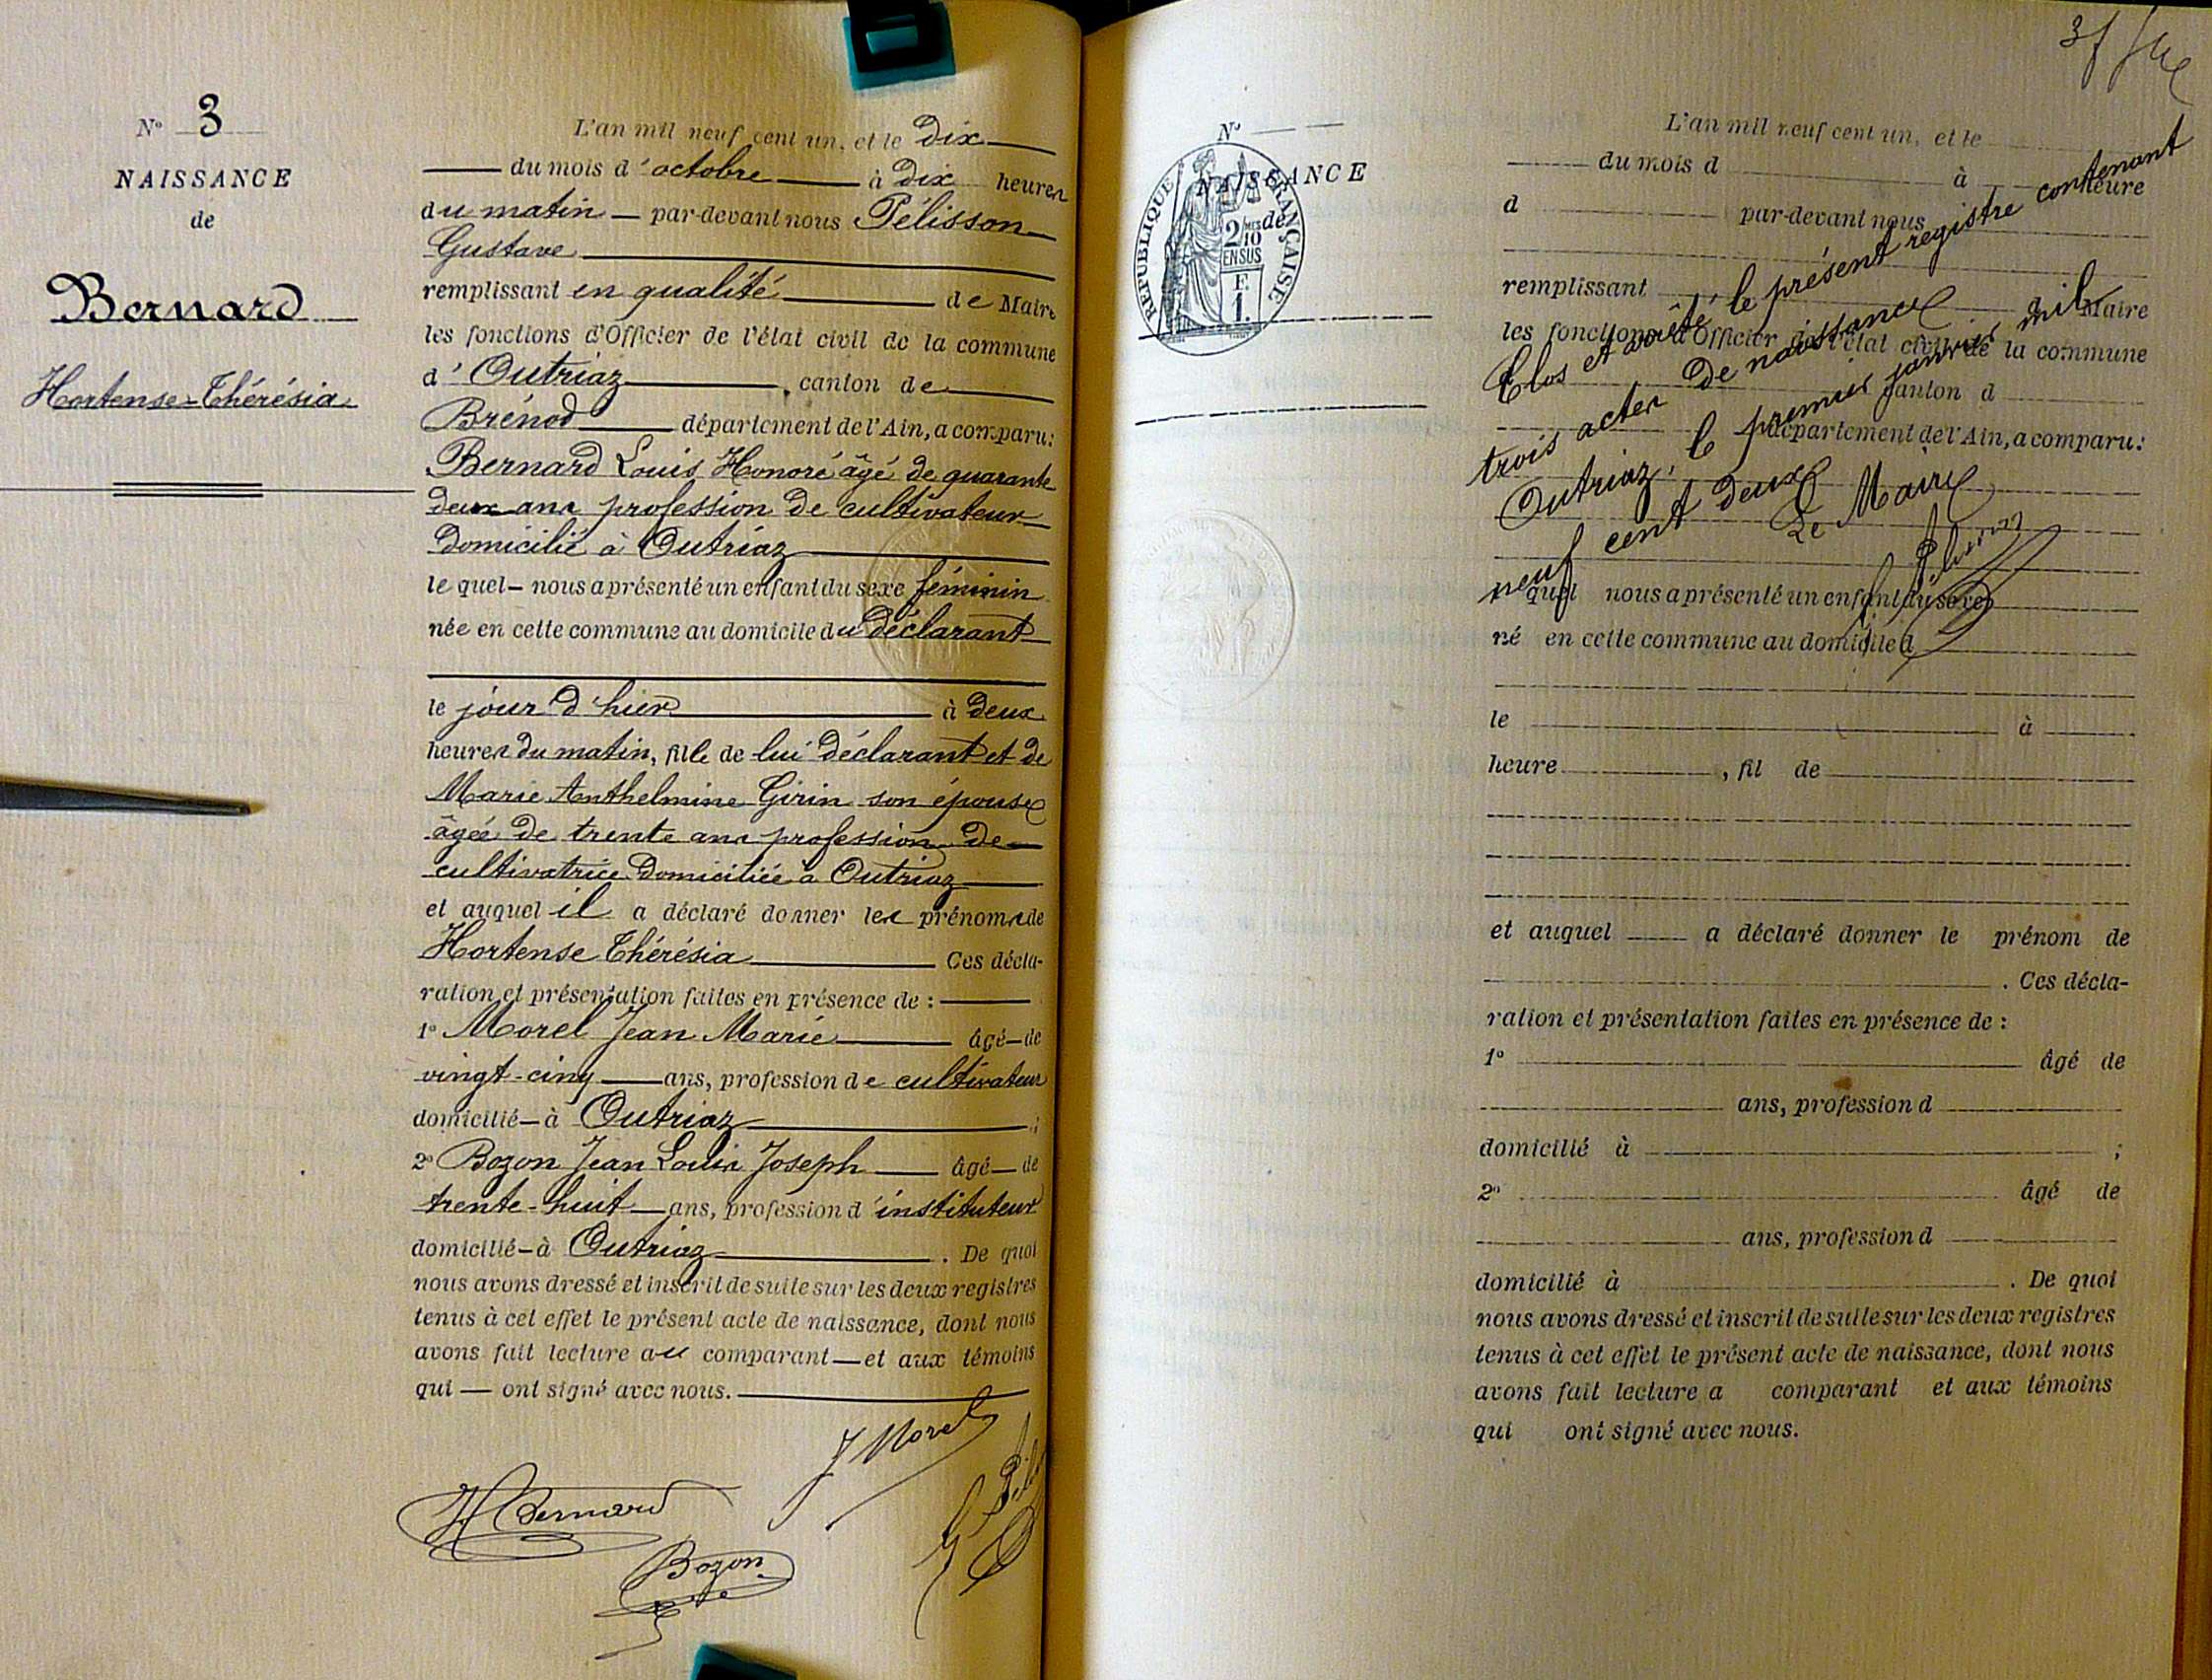 N° 3
NAISSANCE
de
Bernard
Hortense-Thérésia
L'an mil neuf cent un, et le dix
du mois d'octobre à dix heures
du matin par-devant nous Pélisson
Gustave
remplissant en qualité de Maire
les fonctions d'Officier de l'état civil de la commune
d'Outriaz, canton de
Brénod département de l'Ain, a comparu:
Bernard Louis Honoré âgé de quarante
deux ans profession de cultivateur
domicilié à Outriaz
le quel nous a présenté un enfant du sexe féminin
née en cette commune au domicile du déclarant
le jour d'hier à deux
heures du matin, fille de lui déclarant et de
Marie Anthelmine Girin son épouse
âgée de trente ans profession de
cultivatrice domiciliée à Outriaz
et auquel il a déclaré donner les prénoms de
Hortense Thérésia Ces décla-
ration et présentation faites en présence de :
1° Morel Jean Marie âgé de
vingt-cinq ans, profession de cultivateur
domicilié à Outriaz ;
2° Bozon Jean Louis Joseph âgé de
trente-huit ans, profession d'instituteur
domicilié à Outriaz . De quoi
nous avons dressé et inscrit de suite sur les deux registres
tenus à cet effet le présent acte de naissance, dont nous
avons fait lecture au comparant et aux témoins
qui ont signé avec nous.
J Morel
H Bernard
Bozon
N°
NAISSANCE
de
RÉPUBLIQUE FRANÇAISE
2/10 EN SUS
F.
1.
L'an mil neuf cent un, et le
du mois d à heure
d par-devant nous
remplissant Maire
les fonctions d'Officier de l'état civil de la commune
d canton d
département de l'Ain, a comparu:
Clos et arrêté le présent registre contenant
trois actes de naissance
Outriaz, le premier janvier mil
neuf cent deux
Le Maire
quel nous a présenté un enfant du sexe
né en cette commune au domicile d
le à
heure , fil de
et auquel a déclaré donner le prénom de
. Ces décla-
ration et présentation faites en présence de :
1° âgé de
ans, profession d
domicilié à ;
2° âgé de
ans, profession d
domicilié à . De quoi
nous avons dressé et inscrit de suite sur les deux registres
tenus à cet effet le présent acte de naissance, dont nous
avons fait lecture a comparant et aux témoins
qui ont signé avec nous.